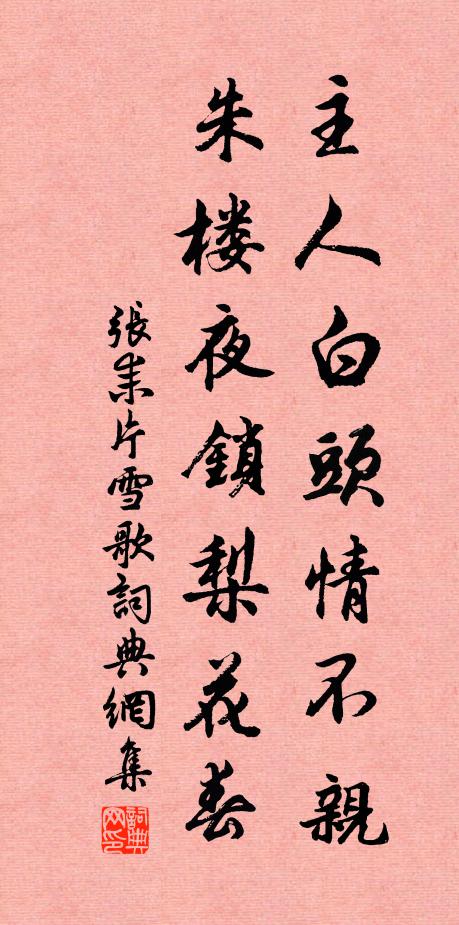 主人白頭情不親
朱楼夜鎖梨花春
張耒片雪歌詞典網集
詞典網印